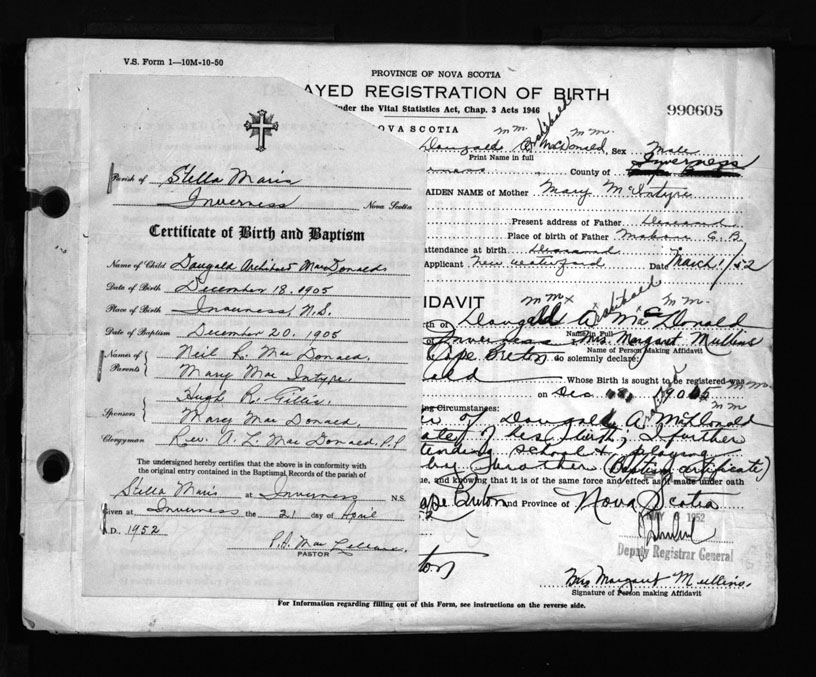 V.S. Form 1—10M-10-50
PROVINCE OF NOVA SCOTIA
AYED REGISTRATION OF BIRTH
nder the Vital Statistics Act, Chap. 3 Acts 1946
990605
NOVA SCOTIA
Dougald A Archibald McDonald, Sex Male
Print Name in full
County of Inverness
AIDEN NAME of Mother Mary McIntyre
Present address of Father Deceased
Place of birth of Father Mabou C.B.
attendance at birth Deceased
Applicant New Waterford Date March 1/52
Parish of Stella Maris
Inverness Nova Scotia
Certificate of Birth and Baptism
Name of Child Dougald Archibald MacDonald
Date of Birth December 18, 1905
Place of Birth Inverness, N.S.
Date of Baptism December 20, 1905
Names of Parents Neil R. MacDonald.
Mary MacIntyre.
Sponsors Hugh R. Gillis.
Mary MacDonald.
Clergyman Rev. A. L. MacDonald, P.P.
The undersigned hereby certifies that the above is in conformity with
the original entry contained in the Baptismal Records of the parish of
Stella Maris at Inverness N.S.
Given at Inverness the 21 day of April
A.D. 1952
PASTOR
IDAVIT
th of Dougald A Archibald MacDonald
Name in Full
Inverness Mrs. Margaret Mullins
Name of Person Making Affidavit
Cape Breton do solemnly declare:
Whose Birth is sought to be registered was
on Dec 1905
ing Circumstances:
of Dougald A. McDonald
ate of his birth, I further
tending school & playing
by brother (Baptism certificate)
ue, and knowing that it is of the same force and effect as if made under oath
ape Breton and Province of Nova Scotia
MAY 1952
Deputy Registrar General
ton
Mrs Margaret Mullins.
Signature of Person making Affidavit
For Information regarding filling out of this Form, see instructions on the reverse side.